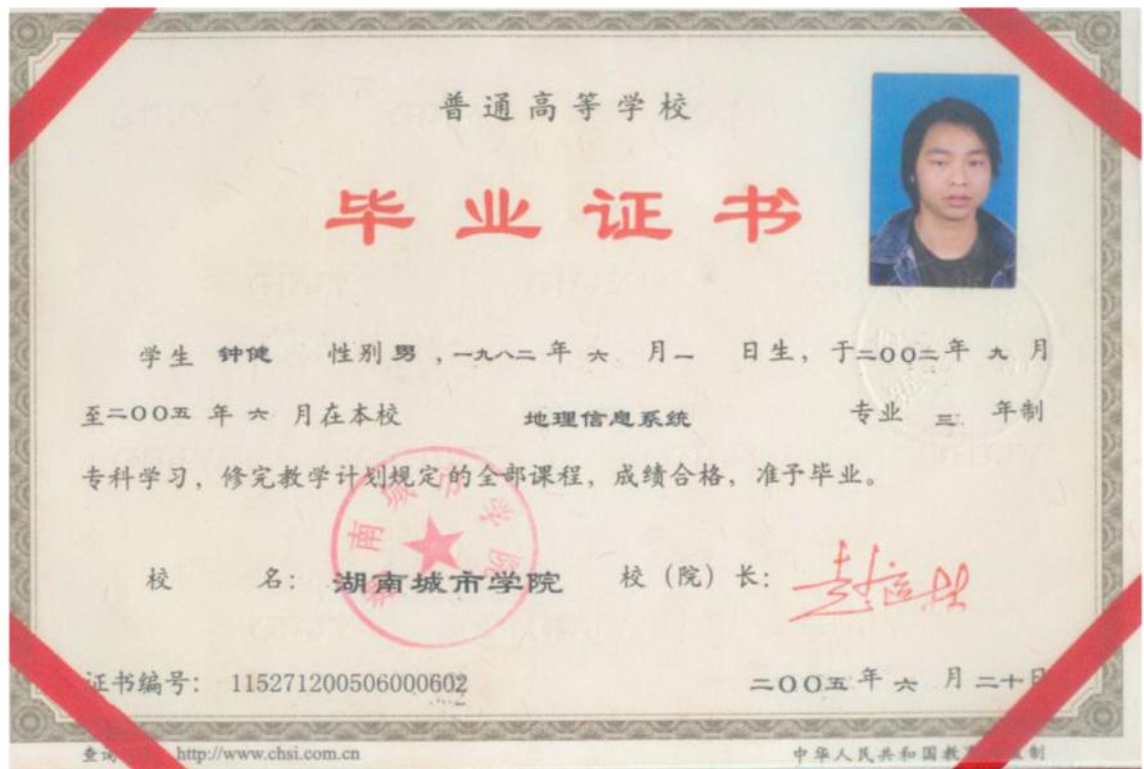 普通高等学校
毕业证书
学生 钟健 性别 男 ,一九八二 年 六 月 一 日生, 于二〇〇二年 九 月
至二〇〇五 年 六 月在本校 地理信息系统 专业 三 年制
专科学习, 修完教学计划规定的全部课程, 成绩合格, 准予毕业。
湖南城市学院
校 名: 湖南城市学院 校 (院) 长:
证书编号: 115271200506000602 二〇〇五 年 六 月 二十日
查询 http://www.chsi.com.cn 中华人民共和国教 制